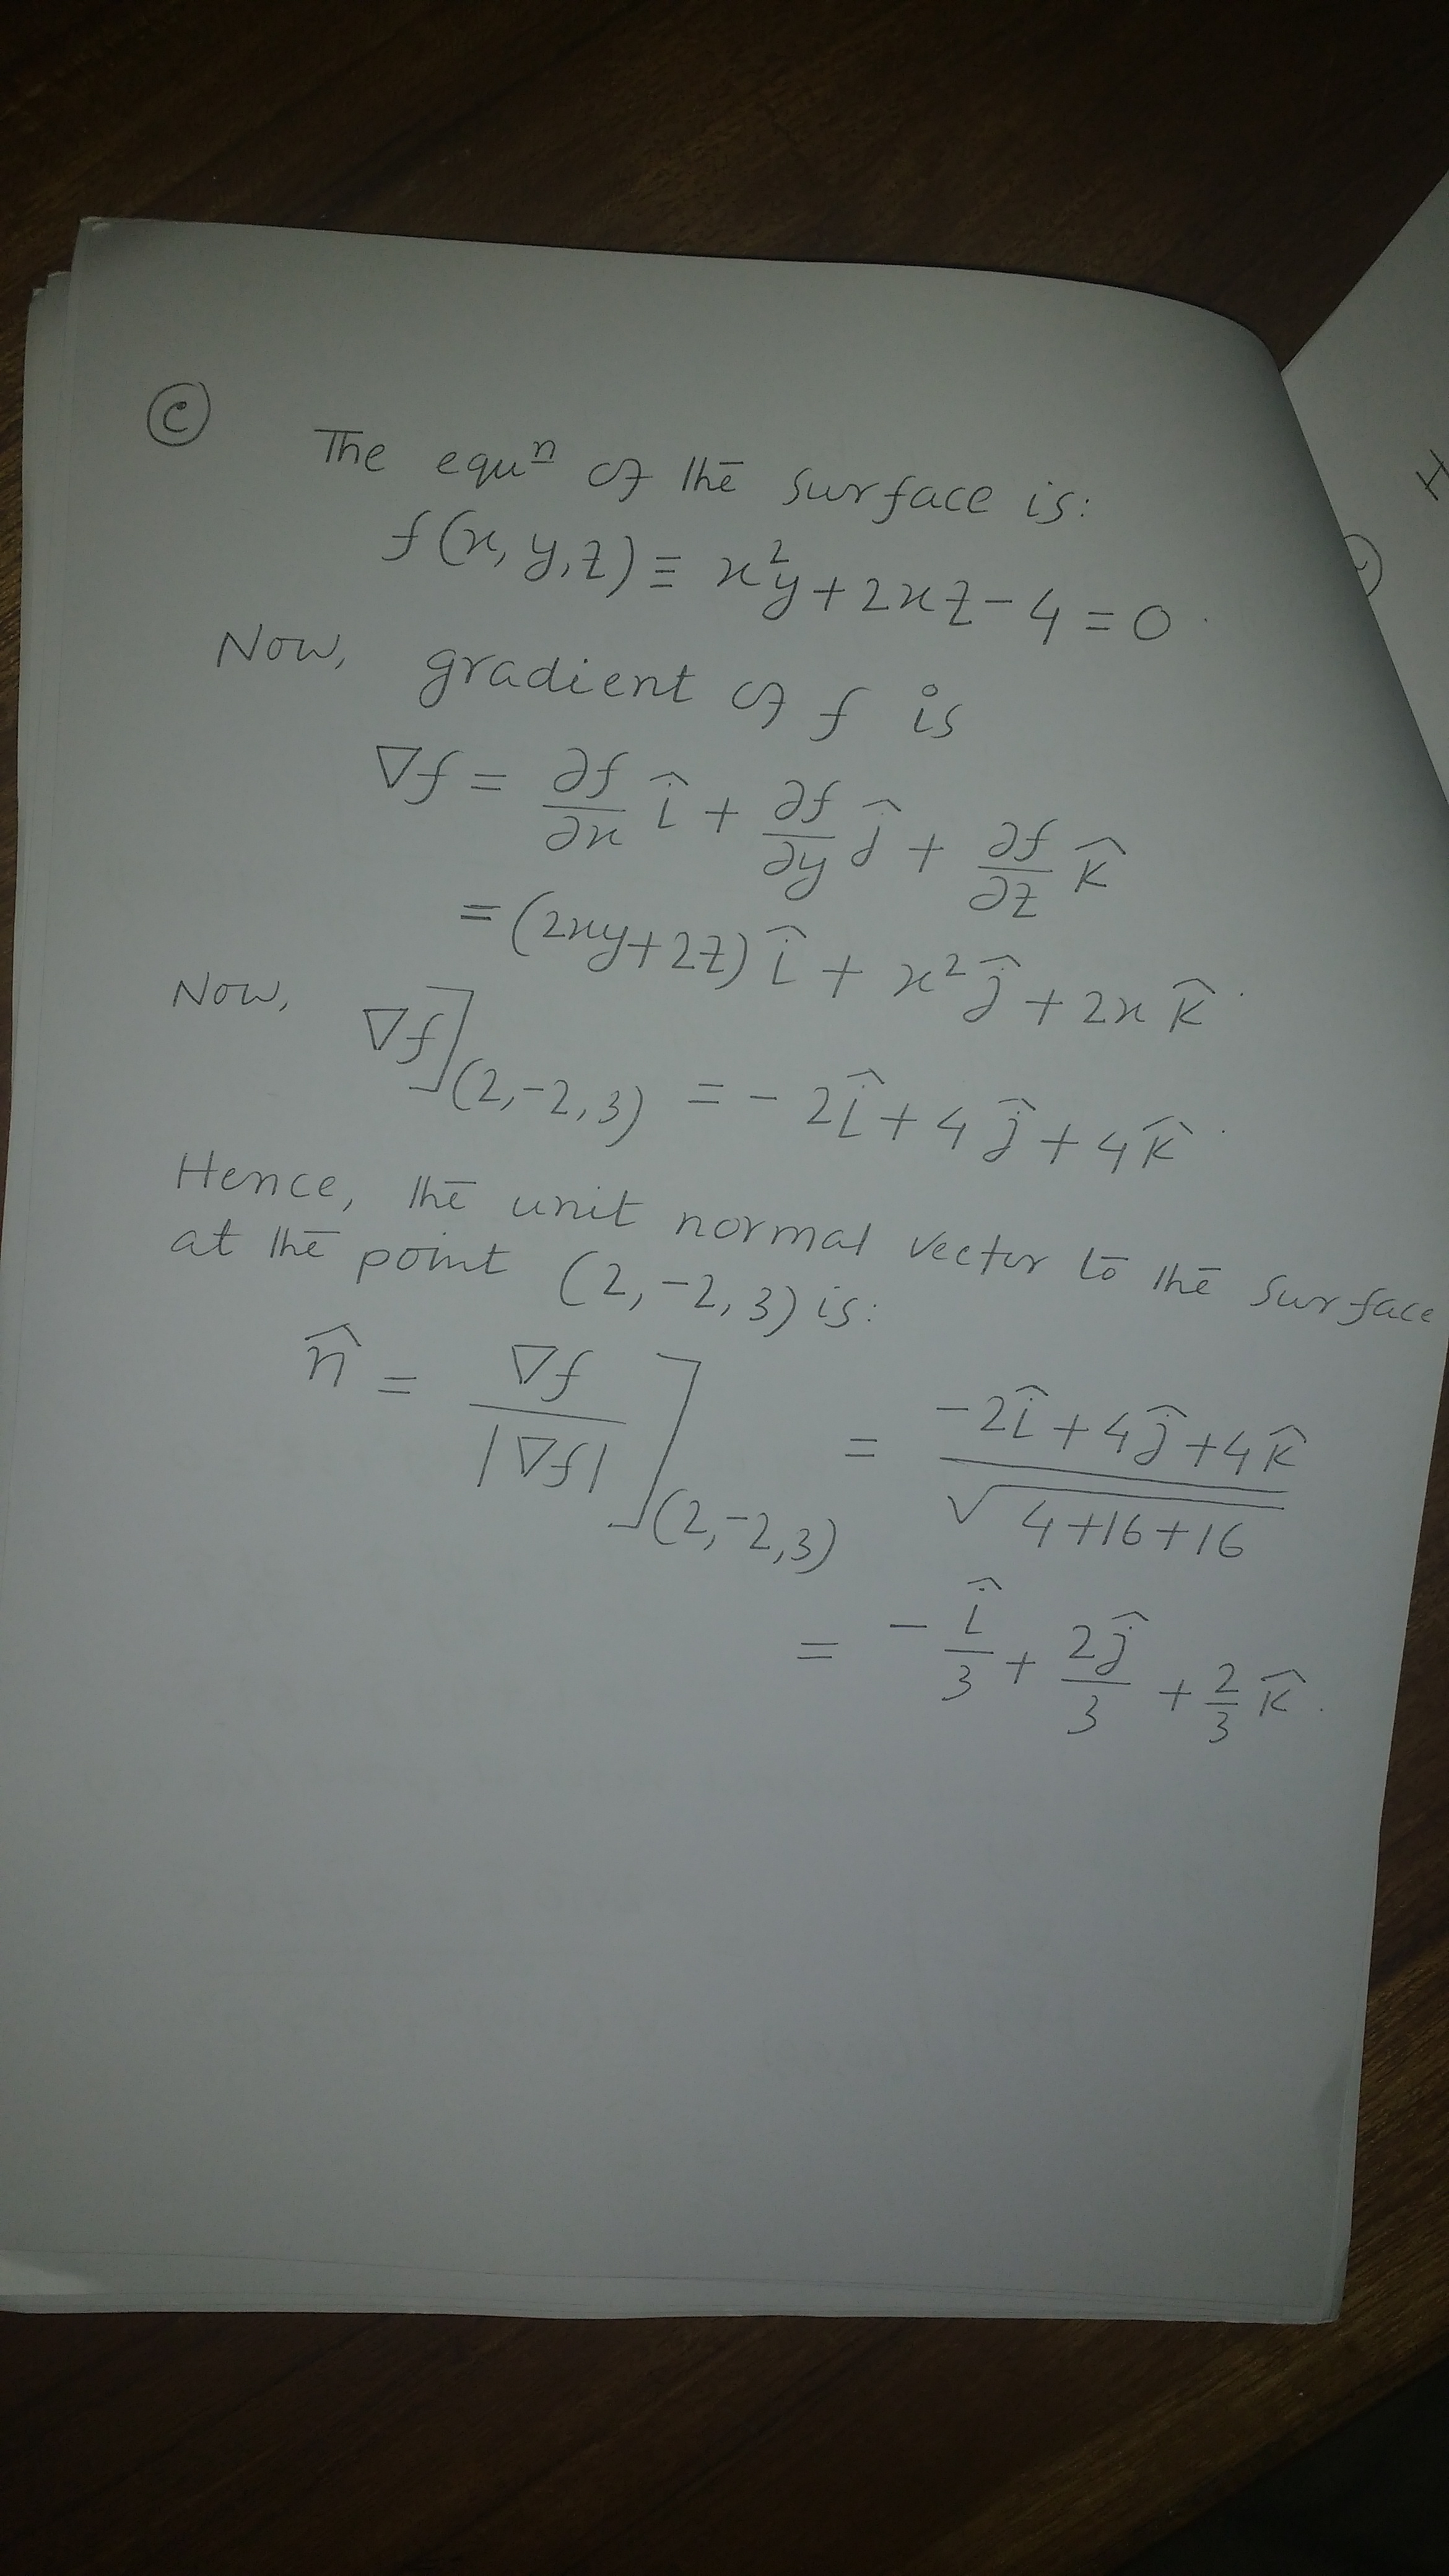 ⓒ
The equⁿ of the surface is:
f(x, y, z) ≡ x²y + 2xz - 4 = 0.
Now, gradient of f is
∇f = ∂f/∂x î + ∂f/∂y ĵ + ∂f/∂z k̂
= (2xy + 2z) î + x² ĵ + 2x k̂.
Now, ∇f](2, -2, 3) = - 2î + 4ĵ + 4k̂.
Hence, the unit normal vector to the surface
at the point (2, -2, 3) is:
n̂ = ∇f/|∇f|](2, -2, 3) = (-2î + 4ĵ + 4k̂)/√(4+16+16)
= - î/3 + 2ĵ/3 + 2/3 k̂.